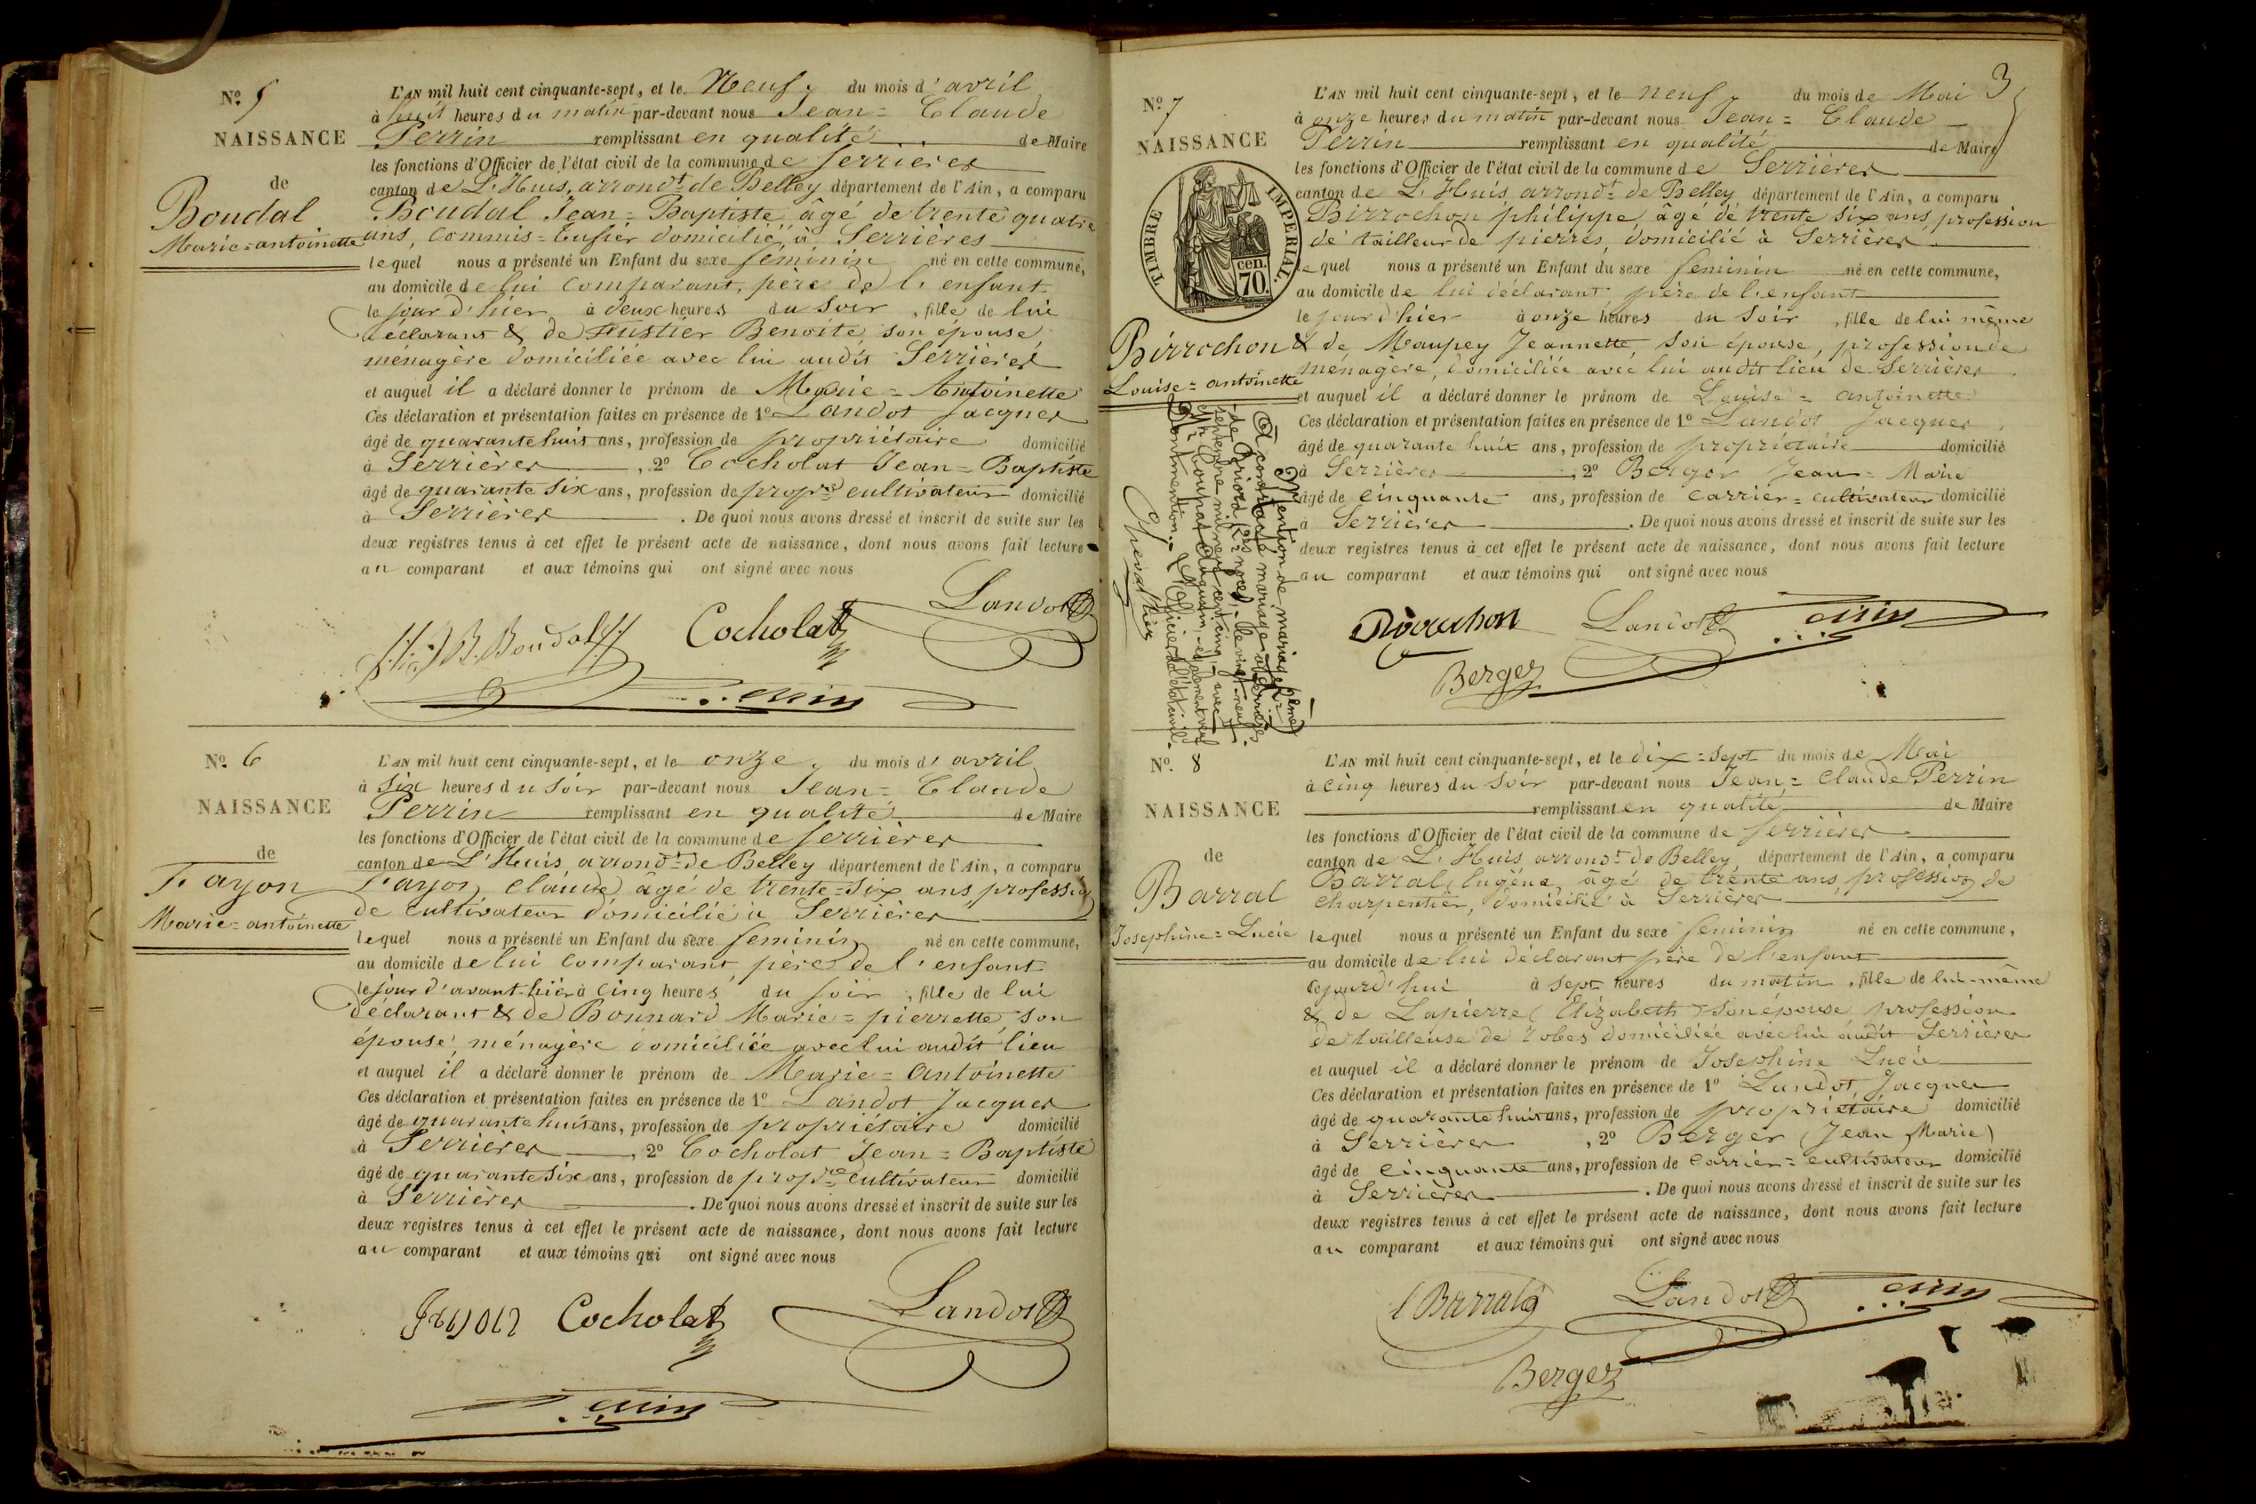 Nº 5
NAISSANCE
de
Boudal
Marie=antoinette
L'AN mil huit cent cinquante-sept, et le Neuf, du mois d'avril
à huit heures du matin par-devant nous Jean=Claude
Perrin remplissant en qualité de Maire
les fonctions d'Officier de l'état civil de la commune de Serrières
canton de L'Huis, arrondt de Belley département de l'Ain, a comparu
Boudal Jean=Baptiste âgé de trente quatre
ans, commis=
domicilié à Serrières
lequel nous a présenté un Enfant du sexe féminin né en cette commune,
au domicile de lui comparant, père de l'enfant
le jour d'hier à deux heures du soir, fille de lui
déclarant & de Fustier Benoite, son épouse,
ménagère domiciliée avec lui audit Serrières
et auquel il a déclaré donner le prénom de Marie=Antoinette
Ces déclaration et présentation faites en présence de 1º Landot Jacques
âgé de quarante huit ans, profession de propriétaire domicilié
à Serrières, 2º Cocholat Jean=Baptiste
âgé de quarante six ans, profession de propre cultivateur domicilié
à Serrières. De quoi nous avons dressé et inscrit de suite sur les
deux registres tenus à cet effet le présent acte de naissance, dont nous avons fait lecture
au comparant et aux témoins qui ont signé avec nous
Landot
J.B. Boudal Cocholat
Perrin
Nº 6
NAISSANCE
de
Fayon
Marie=antoinette
L'AN mil huit cent cinquante-sept, et le onze, du mois d'avril
à six heures du soir par-devant nous Jean=Claude
Perrin remplissant en qualité de Maire
les fonctions d'Officier de l'état civil de la commune de Serrières
canton de L'Huis, arrondt de Belley département de l'Ain, a comparu
Fayon claude âgé de trente=six ans, profession
de cultivateur domicilié à Serrières
lequel nous a présenté un Enfant du sexe féminin né en cette commune,
au domicile de lui comparant, père de l'enfant
le jour d'avant-hier à cinq heures du soir, fille de lui
déclarant & de Bonnard Marie=pierrette, son
épouse, ménagère domiciliée avec lui audit lieu
et auquel il a déclaré donner le prénom de Marie=Antoinette
Ces déclaration et présentation faites en présence de 1º Landot Jacques
âgé de quarante huit ans, profession de propriétaire domicilié
à Serrières, 2º Cocholat Jean=Baptiste
âgé de quarante six ans, profession de propre cultivateur domicilié
à Serrières. De quoi nous avons dressé et inscrit de suite sur les
deux registres tenus à cet effet le présent acte de naissance, dont nous avons fait lecture
au comparant et aux témoins qui ont signé avec nous
Cocholat Landot
Perrin
3
Nº 7
NAISSANCE
TIMBRE IMPÉRIAL.
cen. 70.
Birrochon
Louise=antoinette
L'AN mil huit cent cinquante-sept, et le neuf, du mois de Mai
à onze heures du matin par-devant nous Jean=Claude
Perrin remplissant en qualité de Maire
les fonctions d'Officier de l'état civil de la commune de Serrières
canton de L'Huis, arrondt de Belley département de l'Ain, a comparu
Birrochon philippe, âgé de trente six ans, profession
de tailleur de pierres, domicilié à Serrières
lequel nous a présenté un Enfant du sexe féminin né en cette commune,
au domicile de lui déclarant père de l'enfant
le jour d'hier à onze heures du soir, fille de lui même
& de Maupey Jeannette, son épouse, profession de
ménagère, domiciliée avec lui audit lieu de Serrières
et auquel il a déclaré donner le prénom de Louise=antoinette
Ces déclaration et présentation faites en présence de 1º Landot Jacques
âgé de quarante huit ans, profession de propriétaire domicilié
à Serrières, 2º Berger Jean=Marie
âgé de cinquante ans, profession de carrier=cultivateur domicilié
à Serrières. De quoi nous avons dressé et inscrit de suite sur les
deux registres tenus à cet effet le présent acte de naissance, dont nous avons fait lecture
au comparant et aux témoins qui ont signé avec nous
Birrochon Landot Perrin
Berger
Mention de mariage
A contracté mariage à Serrières
de Briord le vingt-neuf
septembre mil neuf cent cinq, avec
Dont mention. L'Officier de l'état civil.
Nº 8
NAISSANCE
de
Barral
Josephine=Lucie
L'AN mil huit cent cinquante-sept, et le dix=sept du mois de Mai
à cinq heures du soir par-devant nous Jean=Claude Perrin
remplissant en qualité de Maire
les fonctions d'Officier de l'état civil de la commune de Serrières
canton de L'Huis arrondt de Belley, département de l'Ain, a comparu
Barral Eugène, âgé de trente ans, profession de
charpentier, domicilié à Serrières
lequel nous a présenté un Enfant du sexe féminin né en cette commune,
au domicile de lui déclarant père de l'enfant
cejourd'hui à sept heures du matin, fille de lui-même
& de Lapierre Elizabeth son épouse profession
de tailleuse de robes domiciliée avec lui audit Serrières
et auquel il a déclaré donner le prénom de Josephine Lucie
Ces déclaration et présentation faites en présence de 1º Landot Jacques
âgé de quarante huit ans, profession de propriétaire domicilié
à Serrières, 2º Berger (Jean Marie)
âgé de cinquante ans, profession de carrier=cultivateur domicilié
à Serrières. De quoi nous avons dressé et inscrit de suite sur les
deux registres tenus à cet effet le présent acte de naissance, dont nous avons fait lecture
au comparant et aux témoins qui ont signé avec nous
E Barral Landot Perrin
Berger